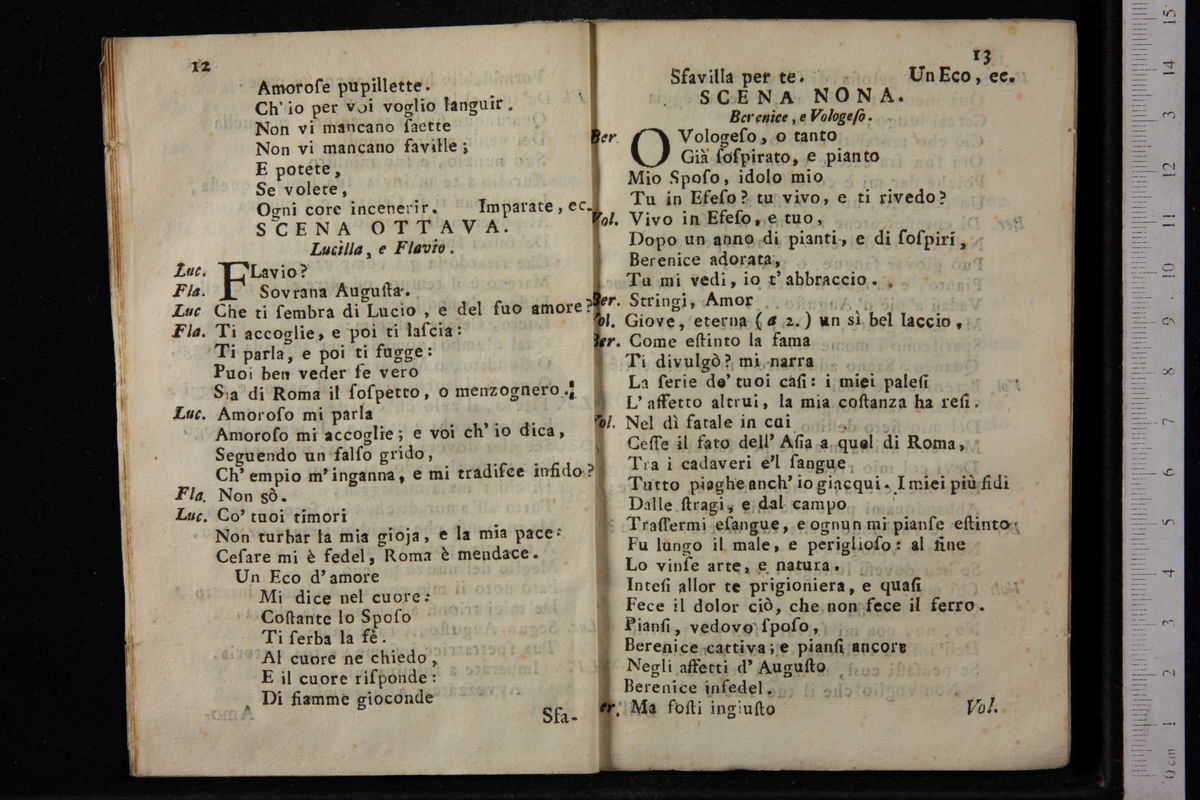 12
Amoroſe pupillette.
Ch' io per voi voglio languir.
Non vi mancano ſaette
Non vi mancano faville;
E potete,
Se volete,
Ogni core incenerir. Imparate, ec.
SCENA OTTAVA.
Lucilla, e Flavio.
Luc. FLavio?
Fla. Sovrana Auguſta.
Luc Che ti ſembra di Lucio, e del ſuo amore?
Fla. Ti accoglie, e poi ti laſcia:
Ti parla, e poi ti fugge:
Puoi ben veder ſe vero
Sia di Roma il ſoſpetto, o menzognero.
Luc. Amoroſo mi parla
Amoroſo mi accoglie; e voi ch' io dica,
Seguendo un falſo grido,
Ch' empio m' inganna, e mi tradiſce infido?
Fla. Non sò.
Luc. Co' tuoi timori
Non turbar la mia gioja, e la mia pace:
Ceſare mi è fedel, Roma è mendace.
Un Eco d' amore
Mi dice nel cuore:
Coſtante lo Spoſo
Ti ſerba la fè.
Al cuore ne chiedo,
E il cuore riſponde:
Di fiamme gioconde
Sfa-
13
Sfavilla per te. Un Eco, ec.
SCENA NONA.
Berenice, e Vologeſo.
Ber. O Vologeſo, o tanto
Già ſoſpirato, e pianto
Mio Spoſo, idolo mio
Tu in Efeſo? tu vivo, e ti rivedo?
Vol. Vivo in Efeſo, e tuo,
Dopo un anno di pianti, e di ſoſpiri,
Berenice adorata,
Tu mi vedi, io t' abbraccio.
Ber. Stringi, Amor
ol. Giove, eterna (a 2.) un sì bel laccio.
Ber. Come eſtinto la fama
Ti divulgò? mi narra
La ſerie de' tuoi caſi: i miei paleſi
L' affetto altrui, la mia coſtanza ha reſi.
ol. Nel dì fatale in cui
Ceſſe il fato dell' Aſia a quel di Roma,
Tra i cadaveri e'l ſangue
Tutto piaghe anch' io giacqui. I miei più fidi
Dalle ſtragi, e dal campo
Traſſermi eſangue, e ognun mi pianſe eſtinto
Fu lungo il male, e periglioſo: al fine
Lo vinſe arte, e natura.
Inteſi allor te prigioniera, e quaſi
Fece il dolor ciò, che non fece il ferro.
Pianſi, vedovo ſpoſo,
Berenice cattiva; e pianſi ancore
Negli affetti d' Auguſto
Berenice infedel.
er. Ma foſti ingiuſto
Vol.